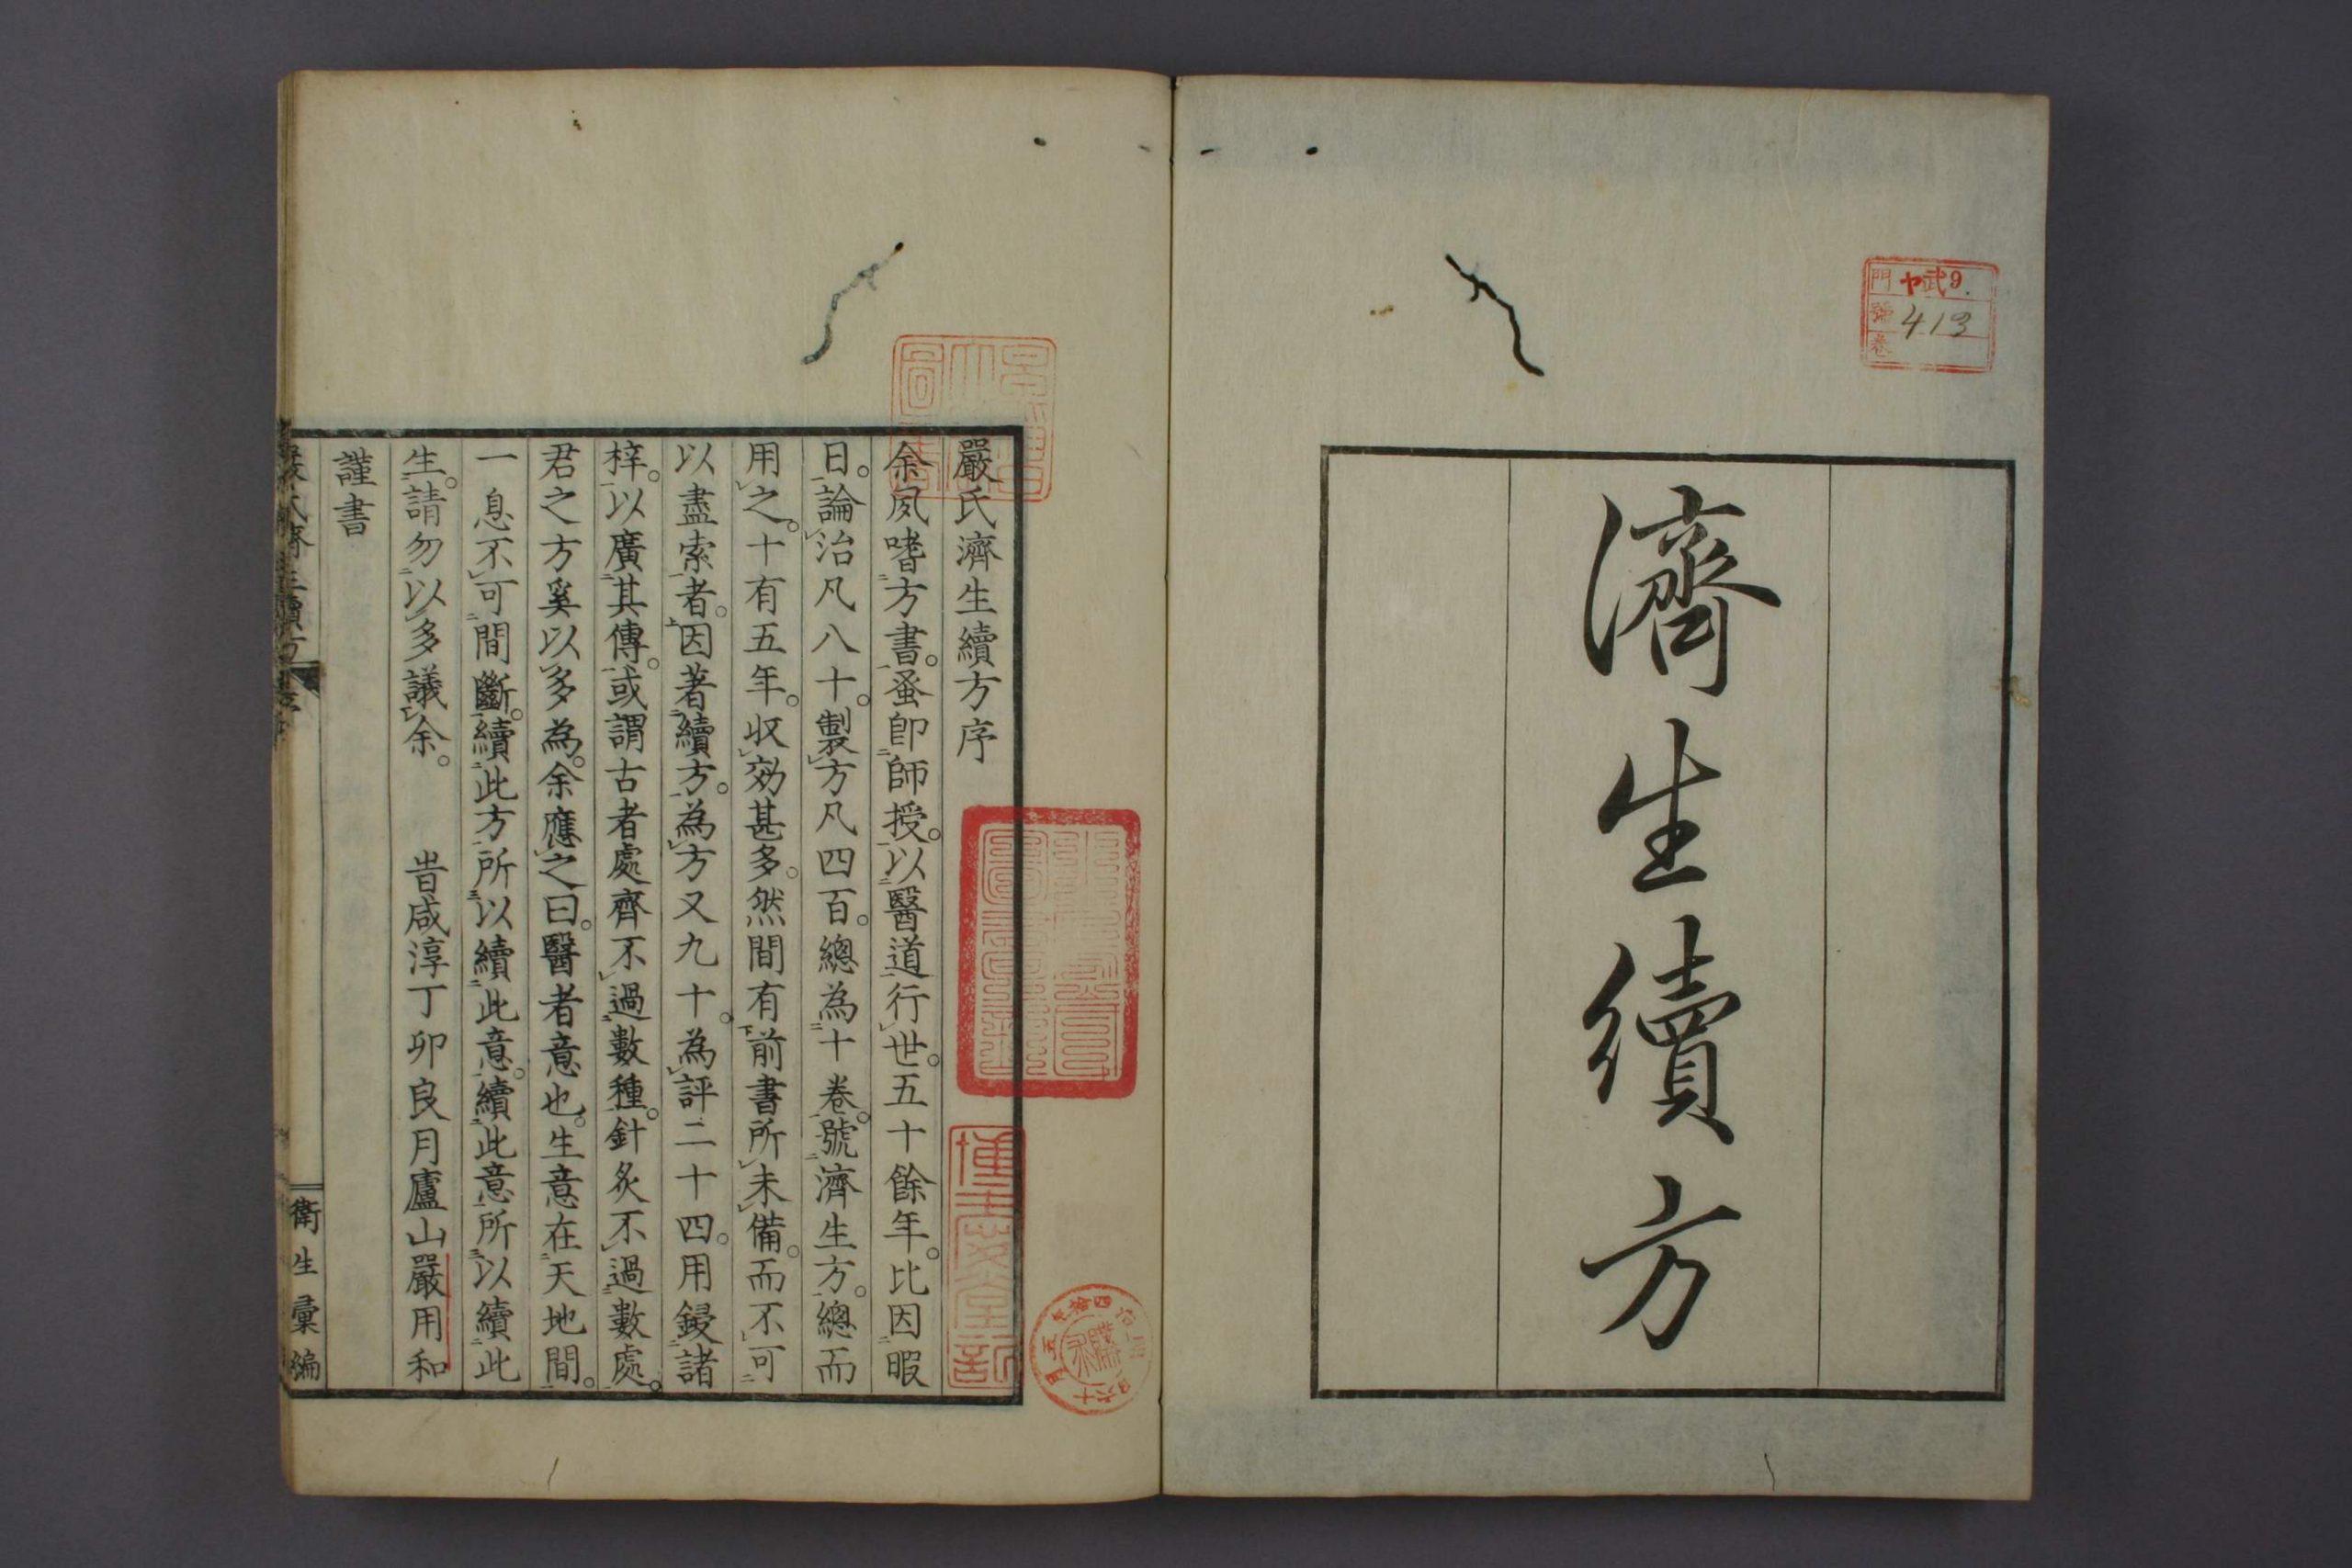 濟生續方
門 ヤ武9.
號 413
卷
嚴氏濟生續方序
余夙嗜方書。蚤卽師授。以醫道行世。五十餘年。比因暇
日。論治凡八十。製方凡四百。總為十卷。號濟生方。總而
用之。十有五年。収効甚多。然間有前書所未備。而不可
以盡索者。因著續方。為方又九十。為評二十四。用鋟諸
梓。以廣其傳。或謂古者處齊不過數種。針炙不過數處。
君之方奚以多為。余應之曰。醫者意也。生意在天地間。
一息不可間斷。續此方所以續此意。續此意所以續此
生。請勿以多議余。 旹咸淳丁卯良月廬山嚴用和
謹書
衛生彙編